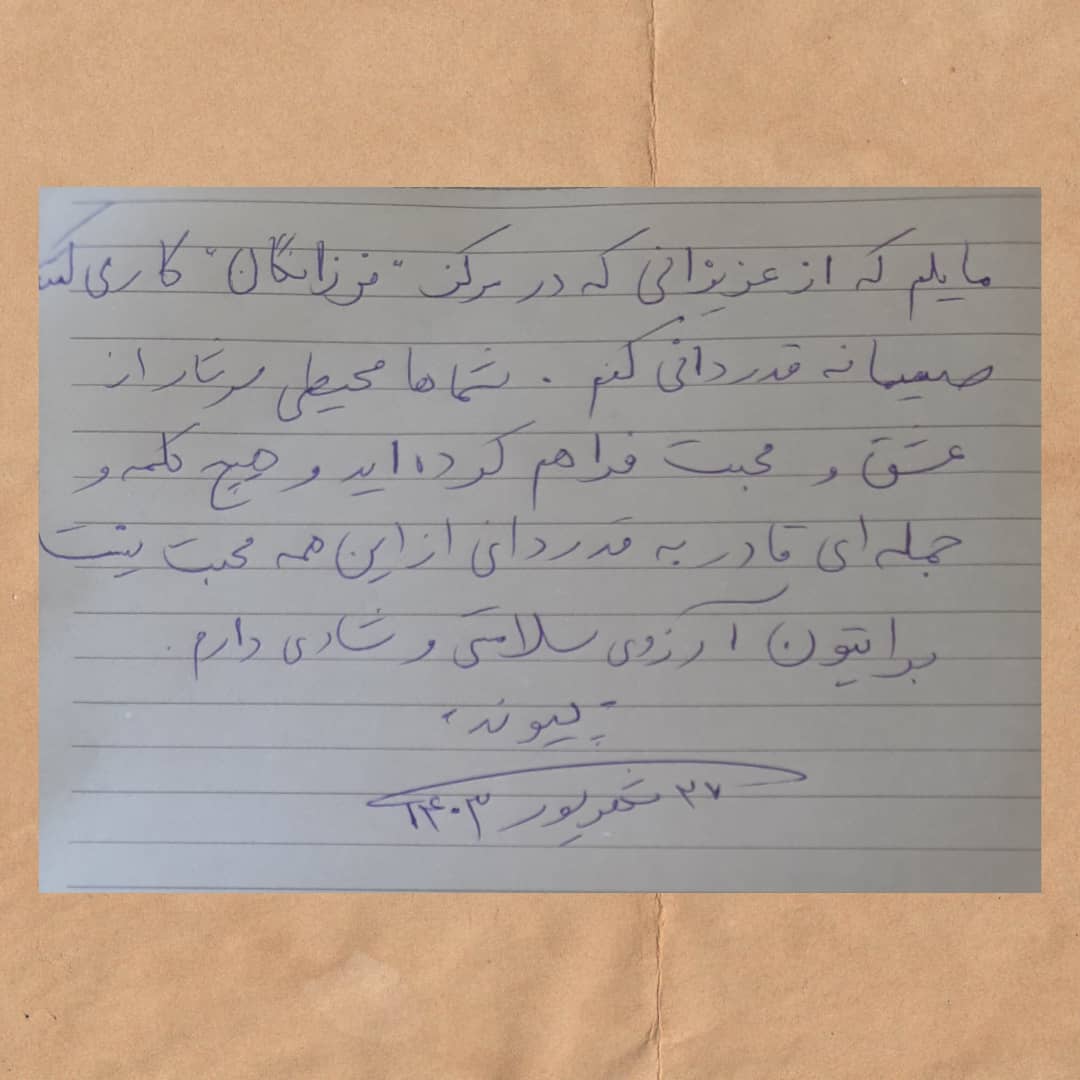 مایلم که از عزیزانی که در مرکز "فرزانگان" کار می‌کنند
صمیمانه قدردانی کنم. شماها محیطی سرشار از
عشق و محبت فراهم کرده‌اید و هیچ کلمه و
جمله‌ای قادر به قدردانی از این همه محبت نیست
براتیون آرزوی سلامتی و شادی دارم.
"پیوند"
۲۷ شهریور ۱۴۰۳